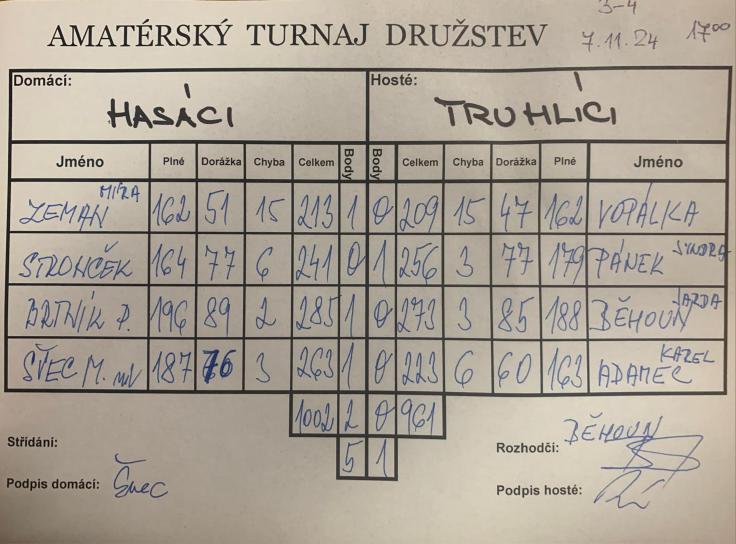 3-4
AMATÉRSKÝ TURNAJ DRUŽSTEV 7.11.24 17⁰⁰
Domácí: Hosté:
HASÁCI TRUHLÍCI
Jméno Plné Dorážka Chyba Celkem Body Body Celkem Chyba Dorážka Plné Jméno
ZEMAN MÍRA 162 51 15 213 1 0 209 15 47 162 VOPÁLKA
STROHČEK 164 77 6 241 0 1 256 3 77 179 PÁNEK
BRTNÍK P. 196 89 2 285 1 0 273 3 85 188 BĚHOUN JARDA
ŠVEC M. ml 187 76 3 263 1 0 223 6 60 163 ADAMEC KAREL
1002 2 0 961
5 1
Střídání: Rozhodčí: BĚHOUN
Podpis domácí: Švec Podpis hosté: